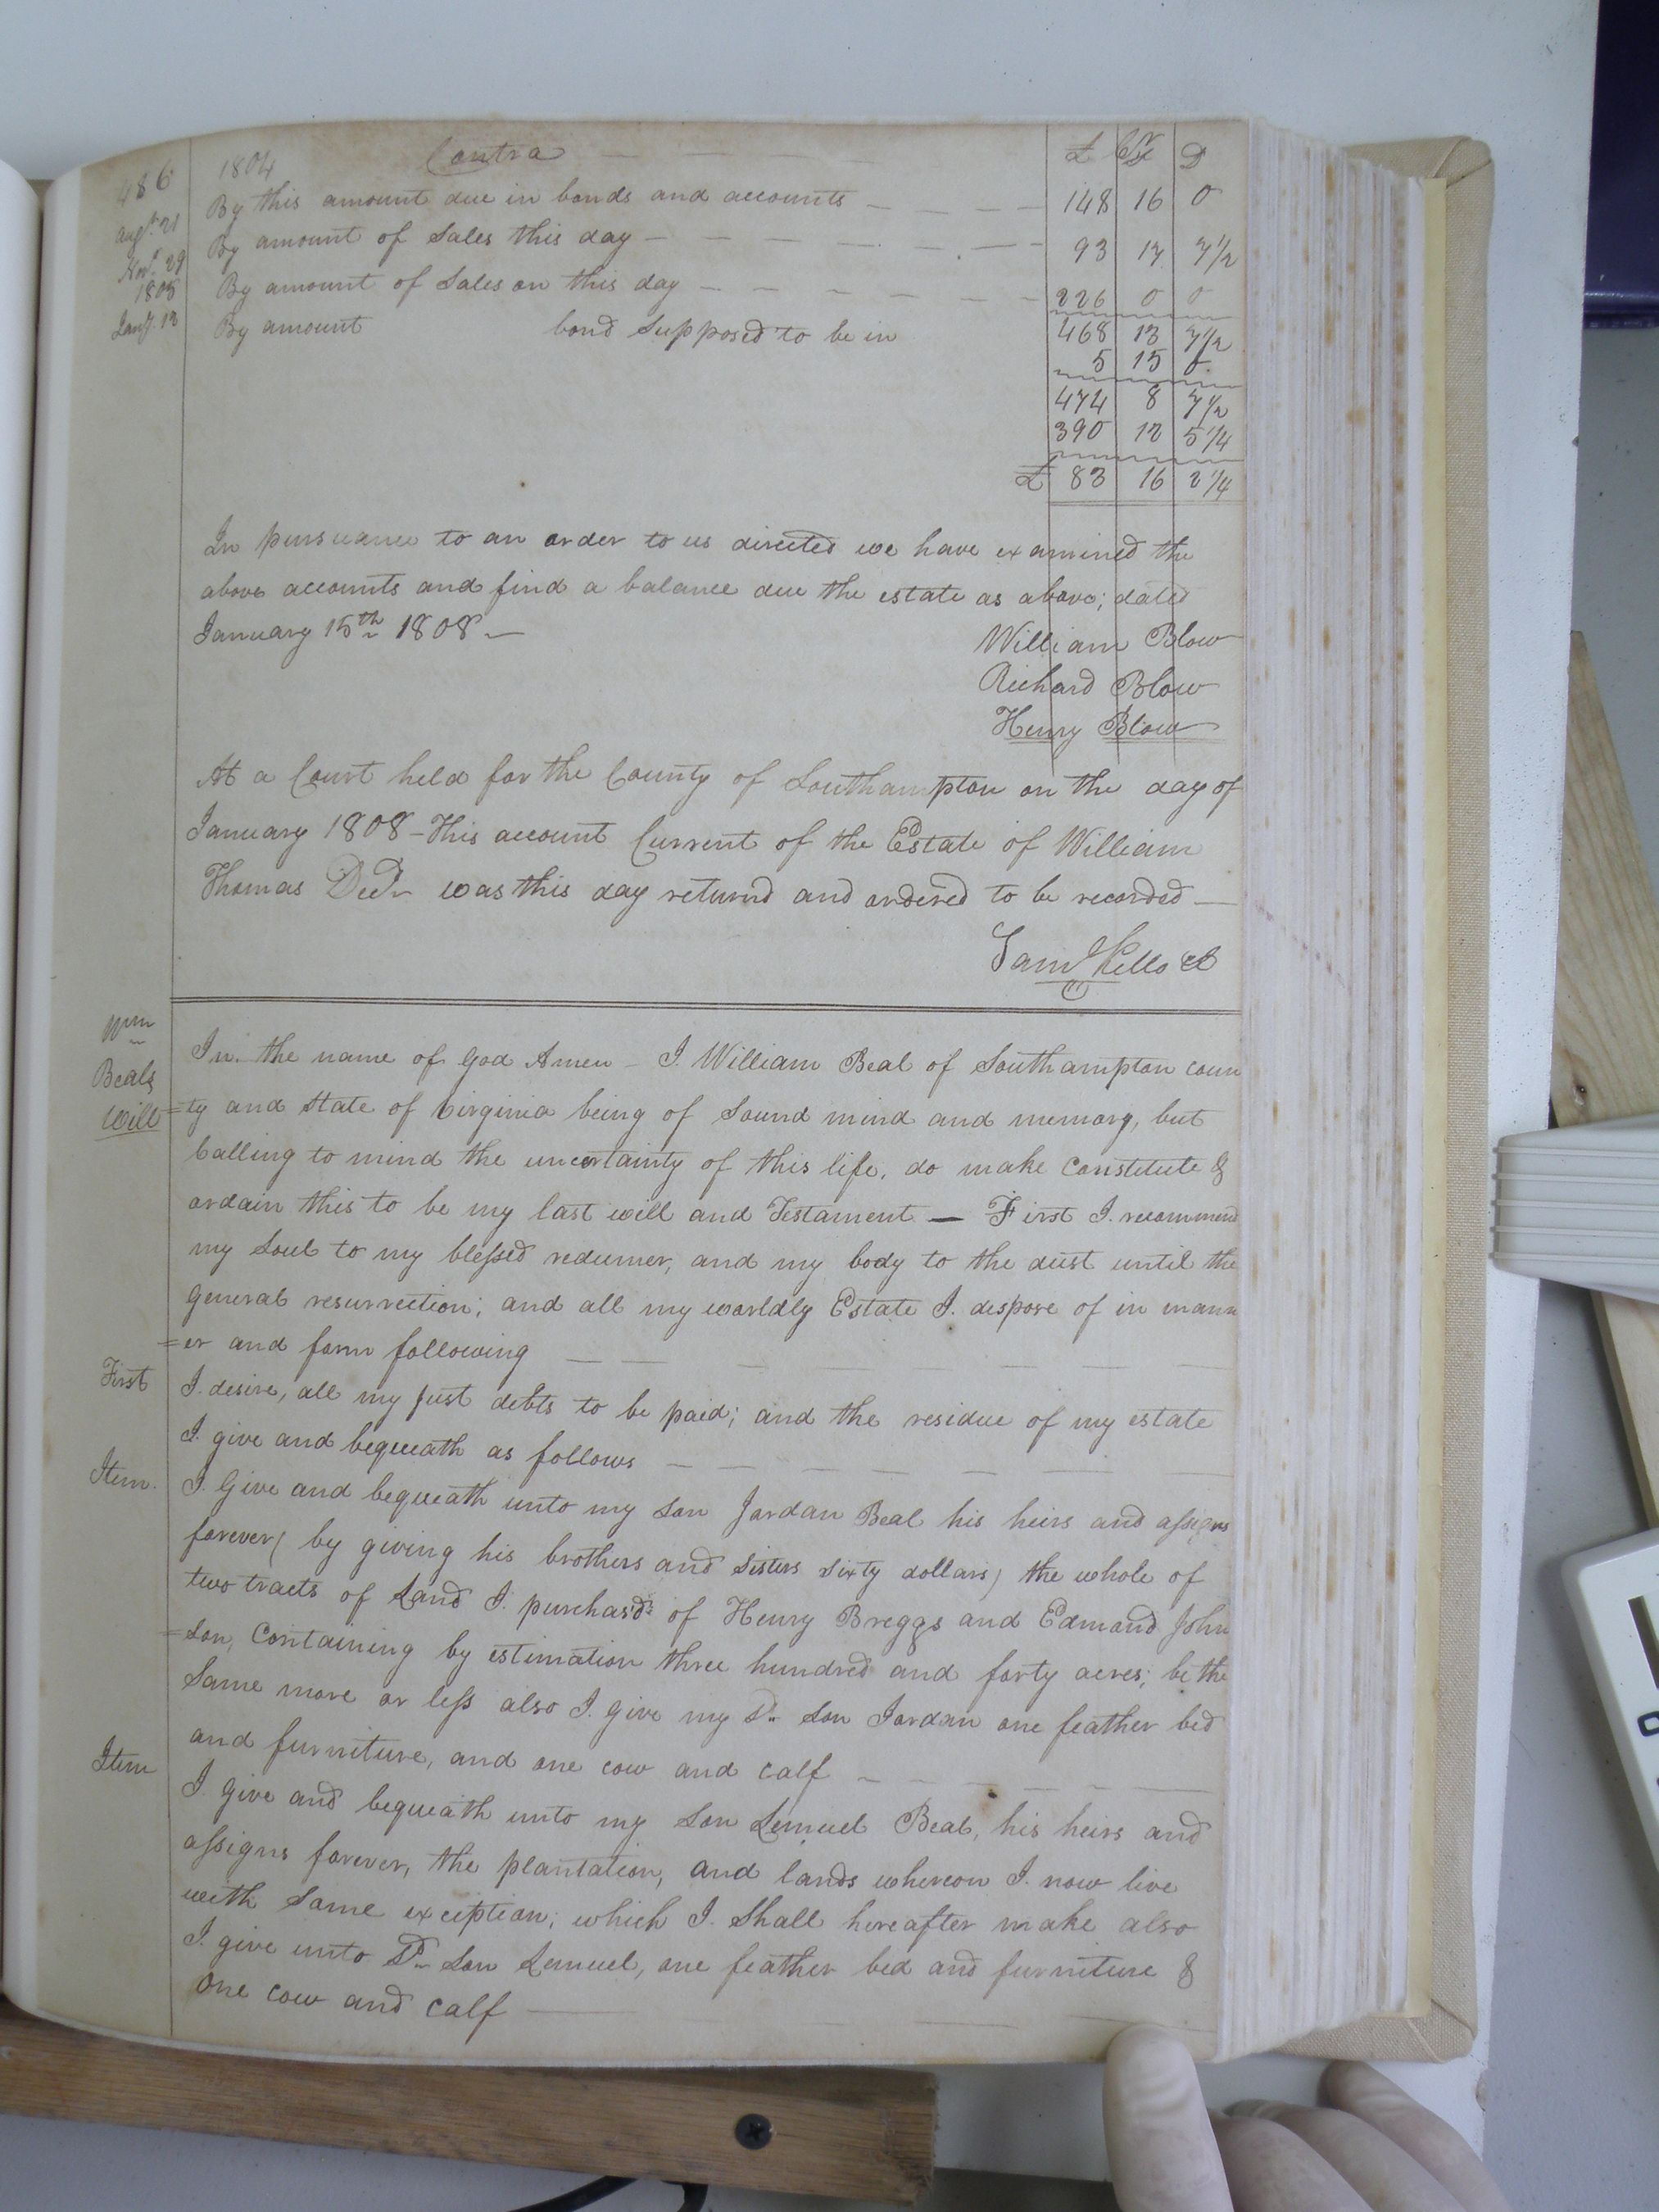 486 1804 Contra — — — £ Cr D
Augt. 21 By this amount due in bonds and accounts — — — — 148 16 0
Novr. 29 By amount of Sales this day — — — — — — — 93 17 7 1/2
1805 By amount of Sales on this day — — — — — — — 226 0 0
468 13 7 1/2
Jany. 13 By amount bond Supposed to be in 5 15 0
474 8 7 1/2
390 12 5 1/4
£ 83 16 2 1/4
In pursuance to an order to us directed we have examined the
above accounts and find a balance due the estate as above; dated
January 15th 1808 —
William Blow
Richard Blow
Henry Blow
At a Court held for the County of Southampton on the day of
January 1808 – This account Current of the Estate of William
Thomas Decd. was this day returnd and ordered to be recorded —
Saml Kello Cl
Wm
Beals
Will
In the name of God Amen – I. William Beal of Southampton coun
=ty and State of Virginia being of Sound mind and memory, but
Calling to mind the uncertainty of this life, do make Constitute &
ordain this to be my last will and Testament — First I. recommend
my Soul to my blessed redeemer, and my body to the dust until the
general resurrection; and all my worldly Estate I. dispose of in mann
=er and form following — — — — — —
First I. desire, all my just debts to be paid; and the residue of my estate
I. give and bequeath as follows — — — — — —
Item. I. Give and bequeath unto my Son Jordan Beal his heirs and assigns
forever( by giving his brothers and Sisters Sixty dollars) the whole of
two tracts of Land I. purchas'd of Henry Breggs and Edmond John
=son, Containing by estimation three hundred and forty acres; be the
Same more or less also I. give my Sd. Son Jordan one feather bed
and furniture, and one cow and calf — — — — —
Item I. Give and bequeath unto my Son Lemuel Beal, his heirs and
assigns forever, the plantation, and lands whereon I. now live
with Some exception; which I. Shall hereafter make also
I. give unto Sd. Son Lemuel, one feather bed and furniture &
One cow and calf —